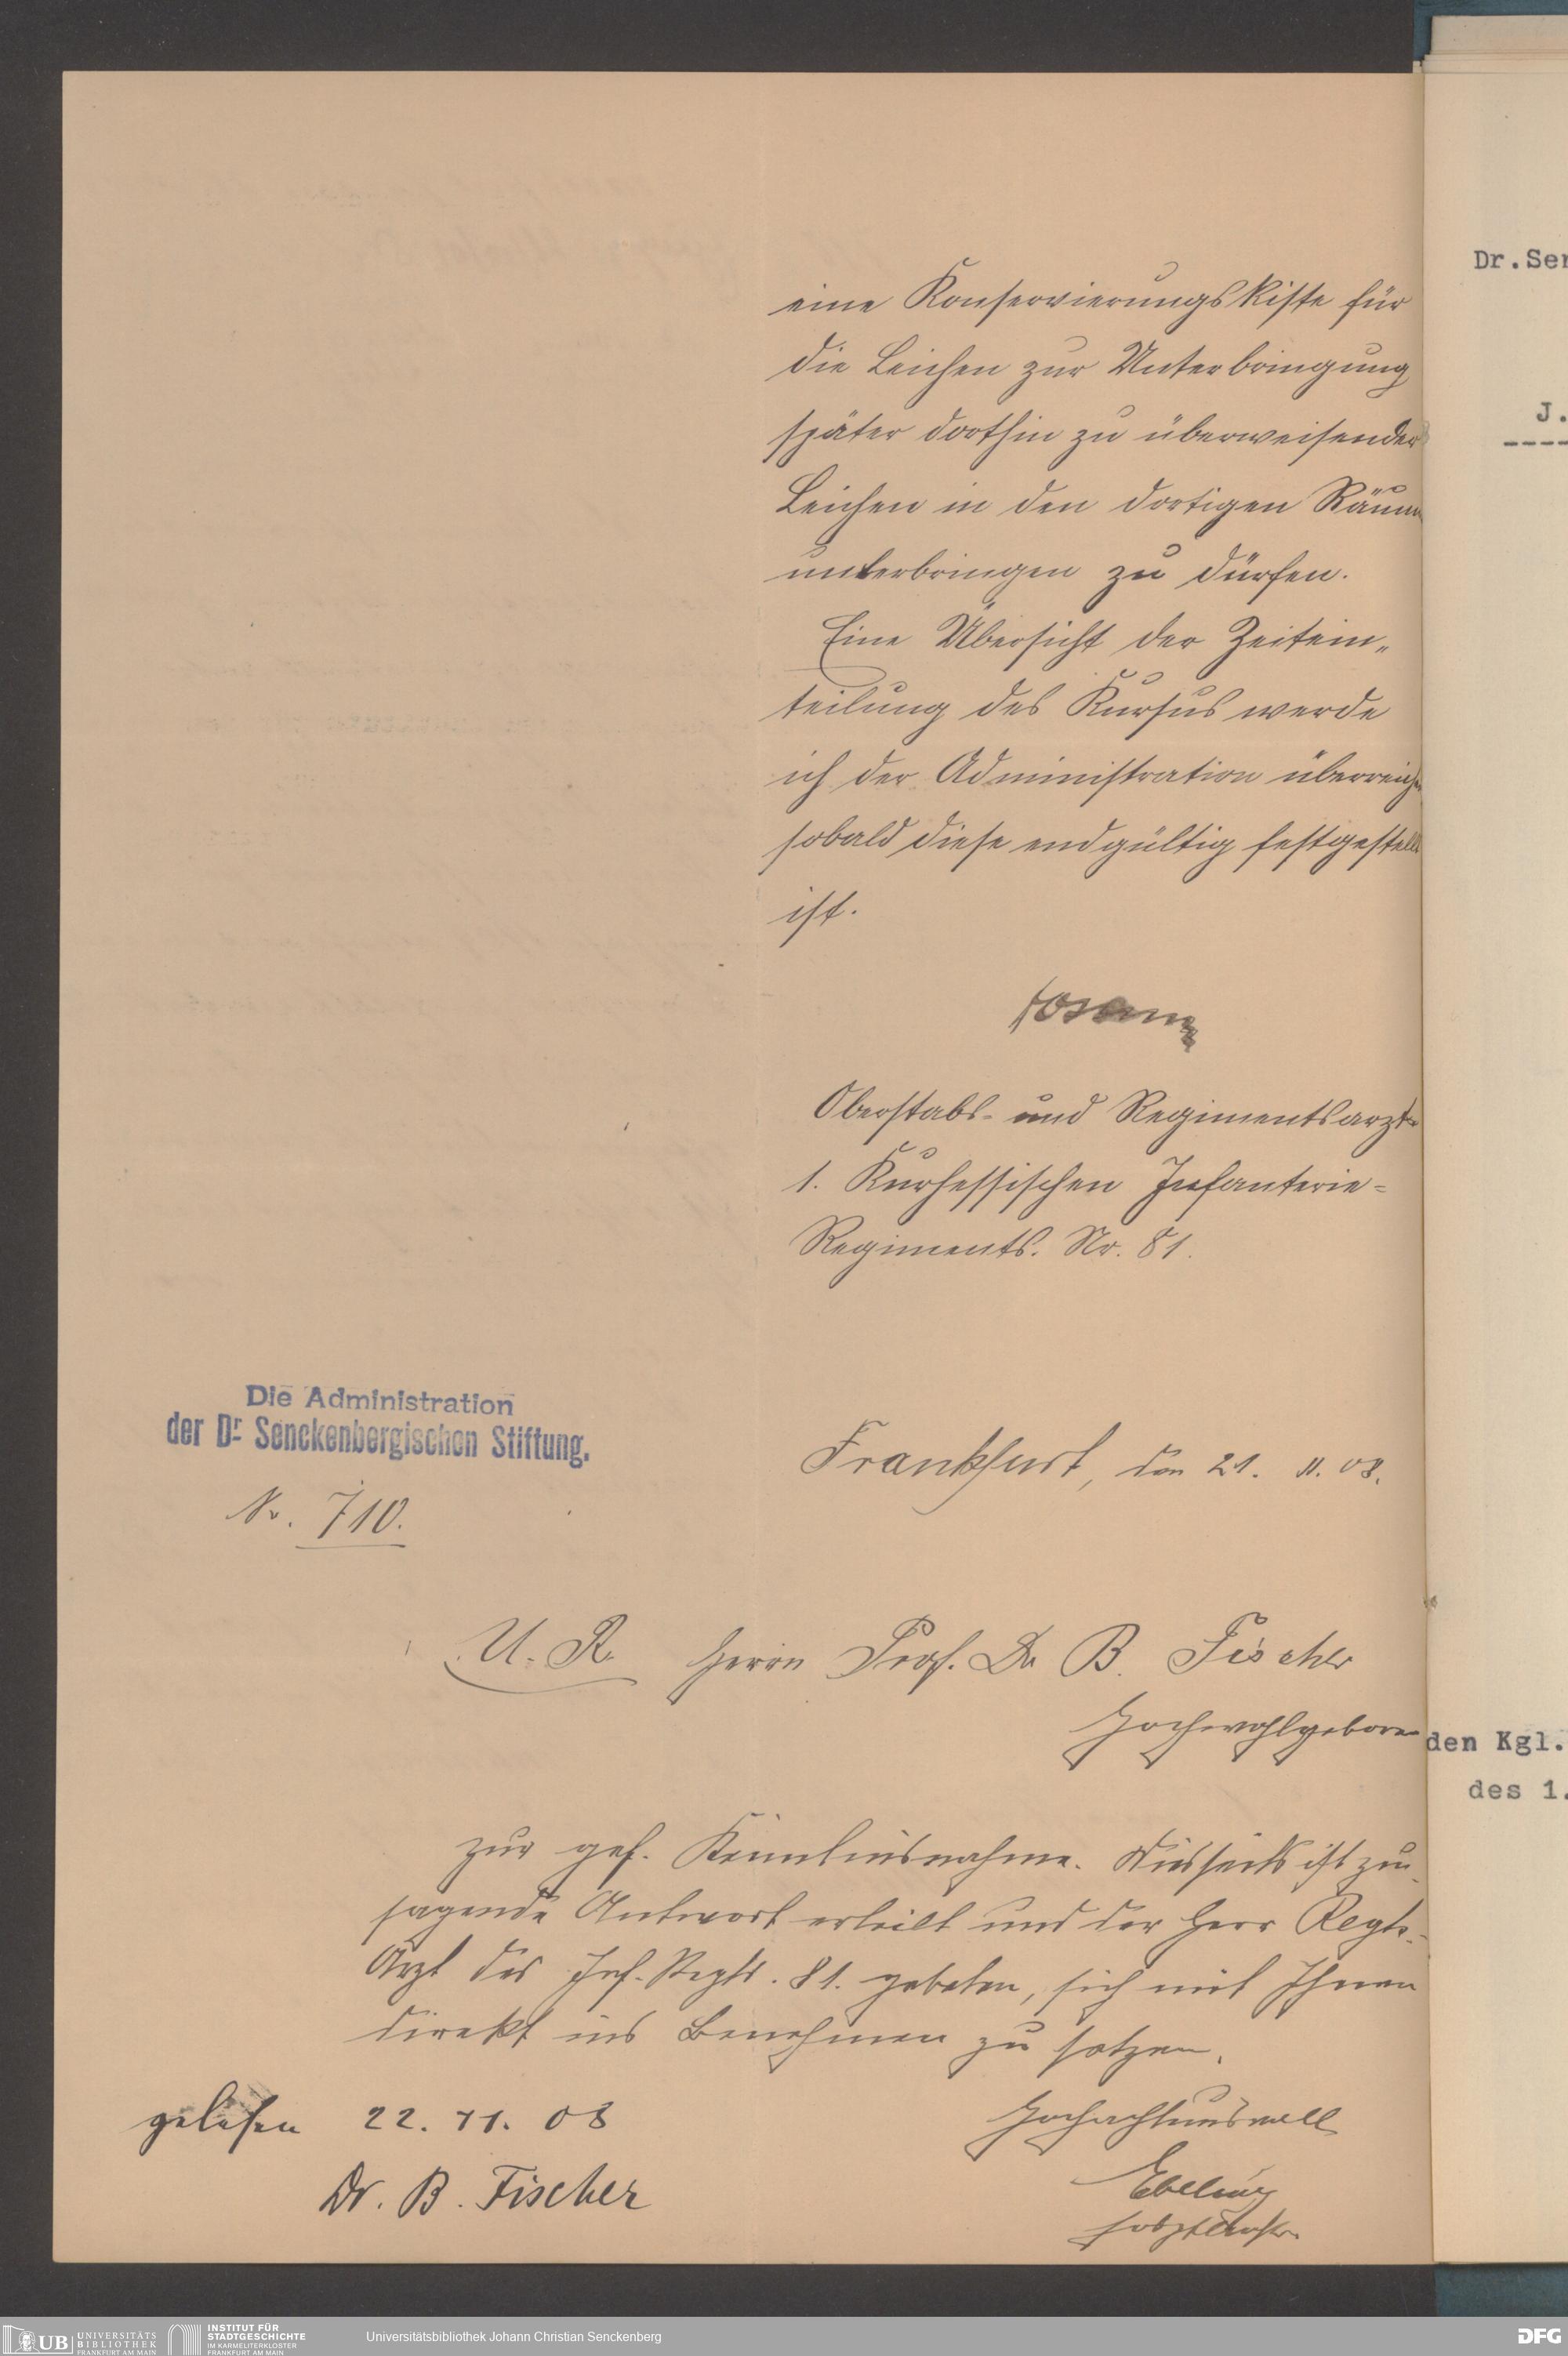 eine Konservierungskiste für
die Leichen zur Unterbringung
später dorthin zu überweisender
Leichen in den dortigen Räum
unterbringen zu dürfen.
Eine Übersicht der Zeitein„
teilung des Kursus werde
ich der Administration überreichen
sobald diese endgültig festgestellt
ist.
Oberstabs- und Regimentsarzt
1. Kurhessischen Infanterie=
Regiments. Nr. 81.
Die Administration
der Dr. Senckenbergischen Stiftung.
Frankfurt, den 21. 11. 08.
Nr. 710.
U. R. Herrn Prof. Dr B. Fischer
Hochwohlgeboren
zur gef. Kenntnisnahme. Diesseits ist zu-
sagende Antwort erteilt und der Herr Regts.-
Arzt des Inf. Regts. 81. gebeten, sich mit Ihnen
direkt ins Benehmen zu setzen.
gelesen 22. 11. 08
Hochachtungsvoll
Dr. B. Fischer
Ebeling
Dr.Sen
J.
----
den Kgl.
des 1.
UB UNIVERSITÄTS
BIBLIOTHEK
FRANKFURT AM MAIN
INSTITUT FÜR
STADTGESCHICHTE
IM KARMELITERKLOSTER
FRANKFURT AM MAIN
Universitätsbibliothek Johann Christian Senckenberg
DFG